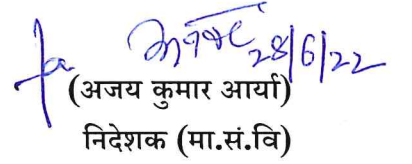 28/6/22
(अजय कुमार आर्या)
निदेशक (मा.सं.वि)